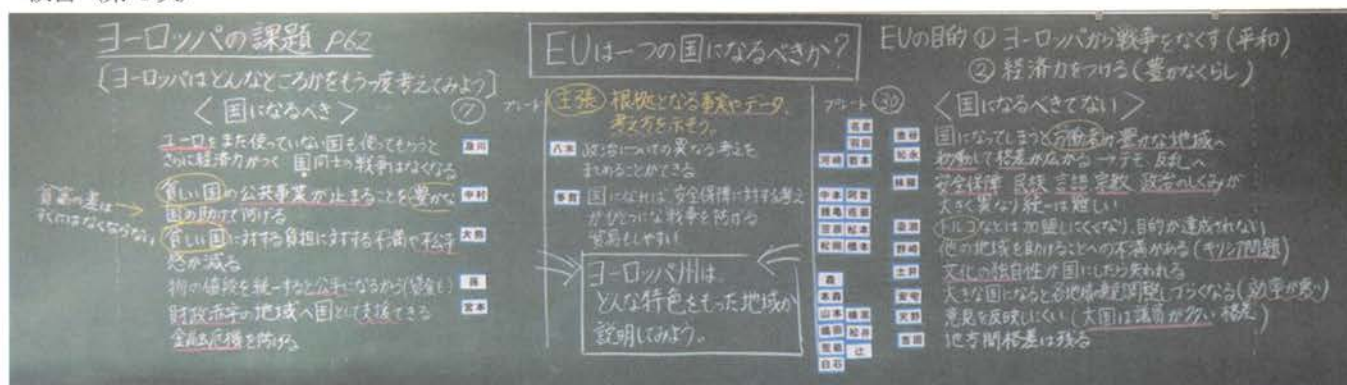 ヨーロッパの課題 P62
〔ヨーロッパはどんなところかをもう一度考えてみよう〕
<国になるべき> ⑦ プレート
ユーロをまだ使っていない国も使ってもらうと
さらに経済力がつく 国同士の戦争はなくなる
及川
貧しい国の公共事業が止まることを豊かな
国の助けで防げる
中村
貧富の差は
すぐにはなくならない
貧しい国に対する負担に対する不満や不公平
感が減る
大熊
物の値段を統一すると公平になるから(賃金も)
孫
財政赤字の地域へ国として支援できる
宮本
金融危機を防げる
EUは一つの国になるべきか?
主張 根拠となる事実やデータ、
考え方を示そう。
八木 政治についての異なる考えを
まとめることができる
多賀 国になれば、安全保障に対する考え
がひとつになり戦争を防げる
貿易もしやすい
ヨーロッパ州は、
どんな特色をもった地域か
説明してみよう。
EUの目的 ① ヨーロッパから戦争をなくす(平和)
② 経済力をつける(豊かなくらし)
プレート ㉚ <国になるべきでない>
国になってしまうと労働者が豊かな地域へ
移動して格差が広がる→デモ、反乱へ
安全保障 民族 言語 宗教 政治のしくみが
大きく異なり統一は難しい
トルコなどは加盟しにくくなり、目的が達成されない
他の地域を助けることへの不満がある(ギリシア問題)
文化の独自性が国にしたら失われる
大きな国になると各地域の意見調整しづらくなる(効率が悪い)
意見を反映しにくい(大国は議員が多い 格差)
地方間格差は残る
河崎 宮本
松永
中本 阿部
佐藤
笠原 松本
松岡 橋本
野崎
土井
森
本森
安宅
山本
天野
松井
吉田
辻
白石